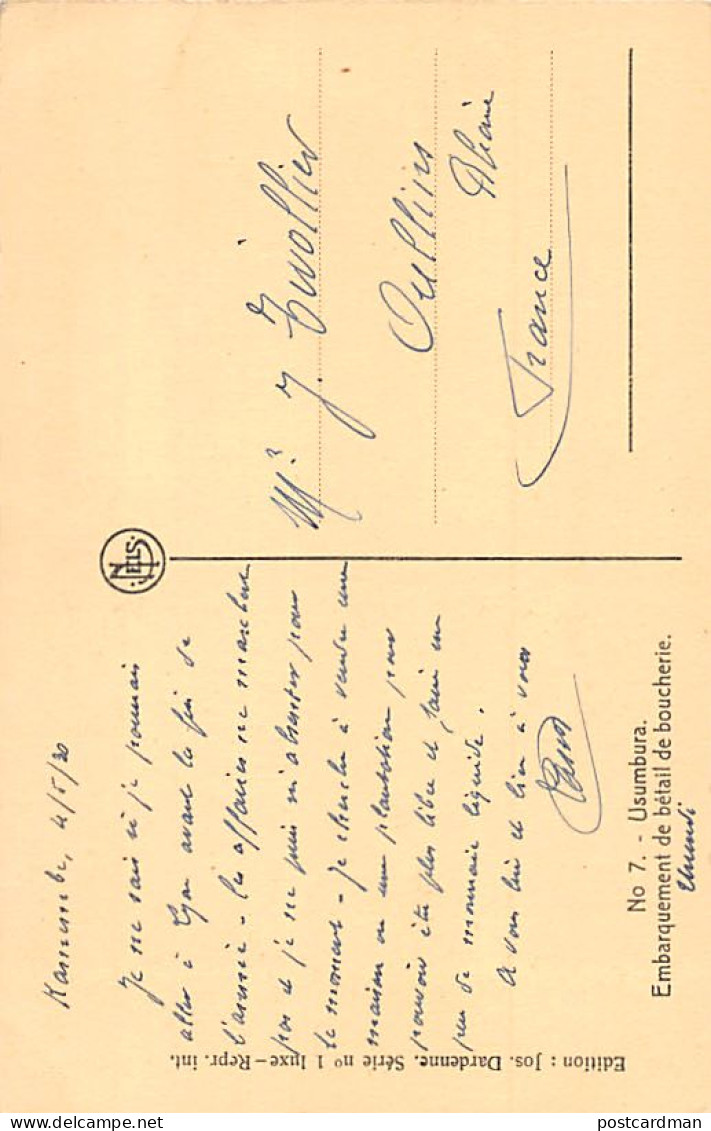 Kamembe, 4/5/30
Je ne sais si je pourrais
aller à Lyon avant la fin de
l'année - les affaires ne marchent
pas et je ne puis m'absenter pour
le moment - je cherche à vendre une
maison ou une plantation pour
pouvoir être plus libre et faire un
peu de monnaie liquide.
A vous lire et bien à vous
Mr J. Tivollier
Oullins
Rhône
France
NELS
No 7. - Usumbura.
Embarquement de bétail de boucherie.
Urundi
Edition : Jos. Dardenne. Série nº 1 luxe-Repr. int.
postcardman